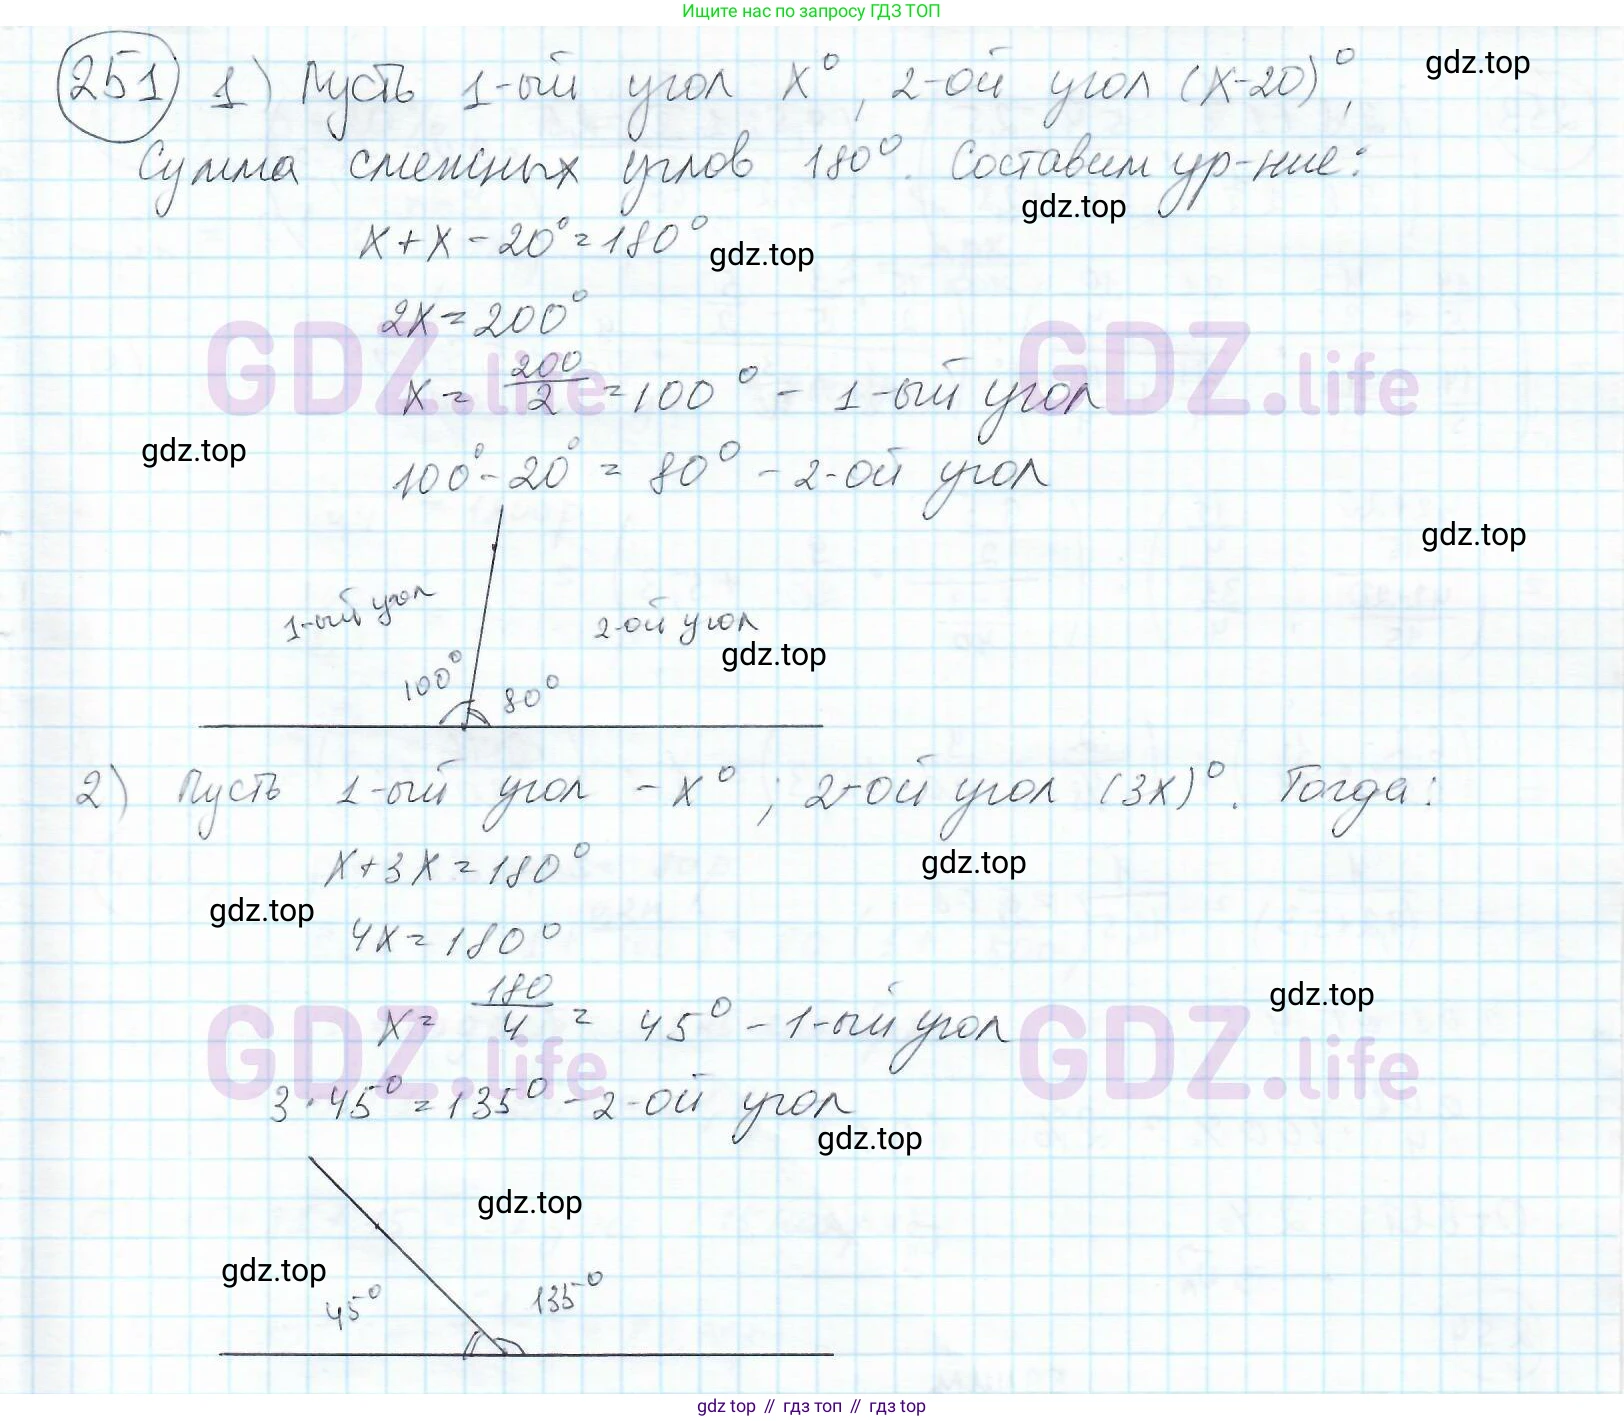 Ищите нас по запросу ГДЗ ТОП
251 1) Пусть 1-ый угол x°, 2-ой угол (x-20)°,
gdz.top
Сумма смежных углов 180°. Составим ур-ние:
gdz.top
x+x-20°=180°
gdz.top
2x=200°
GDZ.life GDZ.life
x= 200/2 =100° - 1-ый угол
gdz.top
100°-20°=80° - 2-ой угол
gdz.top
1-ый угол 2-ой угол
gdz.top
100° 80°
2) Пусть 1-ый угол - x°; 2-ой угол (3x)°. Тогда:
x+3x=180°
gdz.top
gdz.top
4x=180°
gdz.top
x= 180/4 = 45° - 1-ый угол
GDZ.life GDZ.life
3·45°=135° - 2-ой угол
gdz.top
gdz.top
gdz.top
45° 135°
gdz top // гдз топ // гдз top